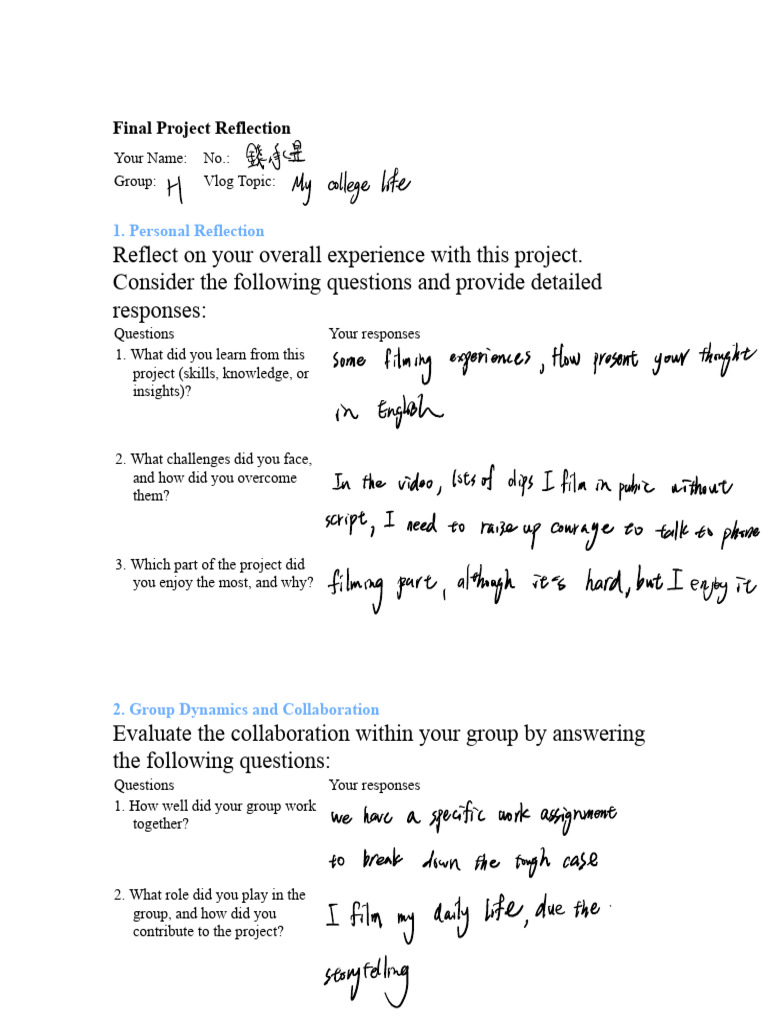 Final Project Reflection
Your Name: No.:
Group: H Vlog Topic: My college life
1. Personal Reflection
Reflect on your overall experience with this project.
Consider the following questions and provide detailed
responses:
Questions Your responses
1. What did you learn from this
project (skills, knowledge, or
insights)?
some filming experiences, How present your thought
in English
2. What challenges did you face,
and how did you overcome
them?
In the video, lots of clips I film in pubic without
script, I need to raize up courage to talk to phone
3. Which part of the project did
you enjoy the most, and why?
filming part, although it's hard, but I enjoy it
2. Group Dynamics and Collaboration
Evaluate the collaboration within your group by answering
the following questions:
Questions Your responses
1. How well did your group work
together?
we have a specific work assignment
to break down the tough case
2. What role did you play in the
group, and how did you
contribute to the project?
I film my daily life, due the
storytelling